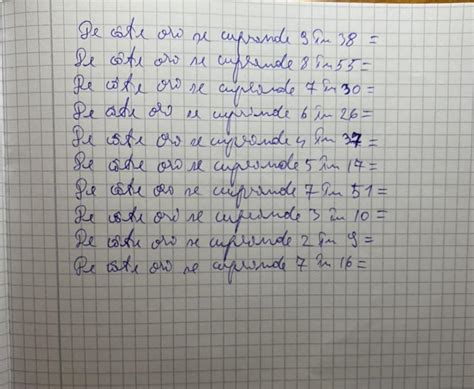 De câte ori se cuprinde 9 în 38 =
De câte ori se cuprinde 8 în 55 =
De câte ori se cuprinde 7 în 30 =
De câte ori se cuprinde 6 în 26 =
De câte ori se cuprinde 4 în 37 =
De câte ori se cuprinde 5 în 17 =
De câte ori se cuprinde 7 în 51 =
De câte ori se cuprinde 3 în 10 =
De câte ori se cuprinde 2 în 9 =
De câte ori se cuprinde 7 în 16 =